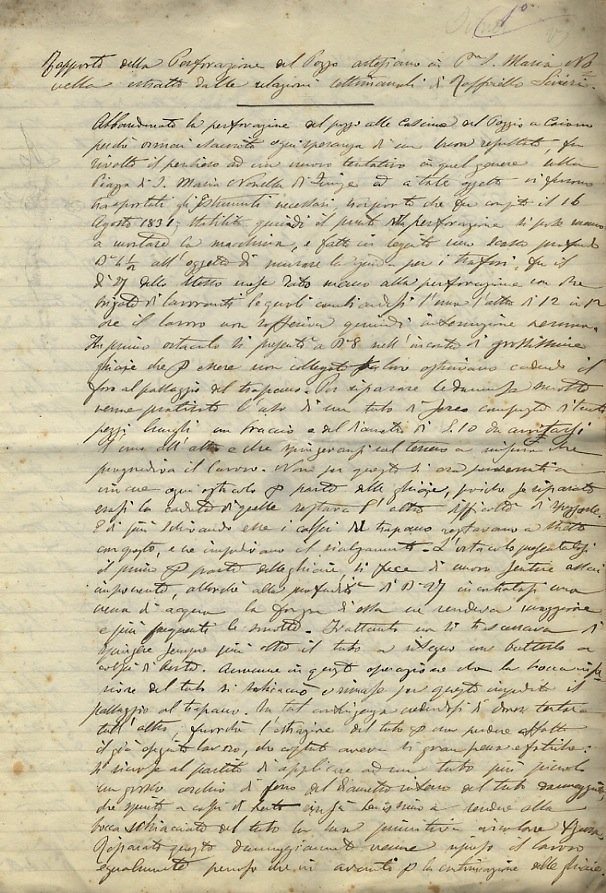 Rapporto della Perforazione del Pozzo artesiano in P.za S. Maria No
vella estratto dalle relazioni settimanali di Raffaello
Abbandonata la perforazione del pozzo alle Cascine del Poggio a Caiano
perché ormai svanita ogni speranza di un buon resultato, fu
rivolto il pensiero ad un nuovo tentativo in quel genere sulla
Piazza di S. Maria Novella di Firenze ed a tale oggetto vi furono
trasportati gl'Istrumenti necessari, trasporto che fu compito il 16
Agosto 1831; stabilito quindi il punto della perforazione si pose mano
a montare la macchina, e fatto in seguito uno scavo profondo
B. 4 1/2 all'oggetto di murare la guida per i trafori, fu il
dì 27 dello stesso mese dato mano alla perforazione con due
brigate di lavoranti le quali cambiandosi l'una l'altra di 12 in 12
ore il lavoro non soffriva quindi interruzione nessuna.
Un primo ostacolo si presentò a B. 8 nell'incontro di grossissime
ghiaje che p essere non collegate fra loro ostruivano cadendo il
foro al passaggio del trapano. Per riparare
venne praticato l'uso di un tubo di ferro composto di tanti
pezzi lunghi un braccio e del diametro di S. 10 da
l'uno all'altro e che spingevasi nel terreno a misura che
progrediva il lavoro. Non per questo si era pervenuti a
vincere ogni ostacolo p parte delle ghiaje, poiché se riparato
erasi la caduta di quelle restava l'altra difficoltà di
e di più derivando che i colpi del trapano restavano a tratto
e ne impedivano il rivolgimento. L'ostacolo presentatosi
il primo p parte delle ghiaje si fece di nuovo sentire assai
imponente, allorché alla profondità di B. 27 incontratasi una
vena di acqua la forza di essa ne rendeva maggiore
e più frequenti le smotte. Frattanto non si trascurava di
spingere sempre più oltre il tubo a ridosso con batterlo a
colpi di berta. Avvenne in questa operazione che la bocca infe
riore del tubo si schiacciò e rimase per questo impedito il
passaggio al trapano. In tal contingenza credendosi di dover tentare
tutt'altro, fuorché l'estrazione del tubo p non perdere affatto
il già eseguito lavoro, che costato aveva sì gran pena e fatica.
Si ricorse al partito di applicare ad un tubo più piccolo
un grosso cerchio di ferro del diametro interno del tubo danneggiato
che spinto a colpi di berta a rendere alla
bocca schiacciata del tubo la sua primitiva circolare figura.
Riparato questo danneggiamento venne ripreso il lavoro
egualmente penoso che in avanti p la continuazione delle ghiaje